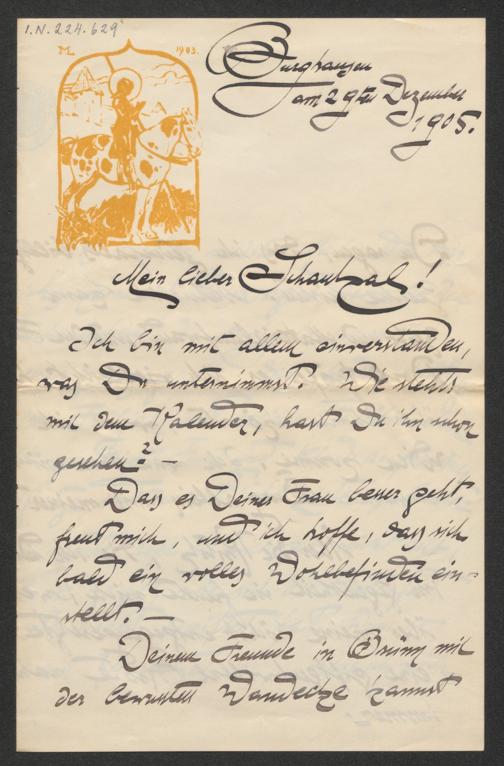 I.N. 224.629
1903.
Burghausen
am 29ten Dezember
1905.
Mein lieber Schaukal!
Ich bin mit allem einverstanden,
was Du unternimmst. Wie stehts
mit dem Kalender, hast Du ihn schon
gesehen? —
Dass es Deiner Frau besser geht,
freut mich, und ich hoffe, dass sich
bald ein volles Wohlbefinden ein-
stellt. —
Deinem Freunde in Brünn mit
der bewussten Wandecke kannst